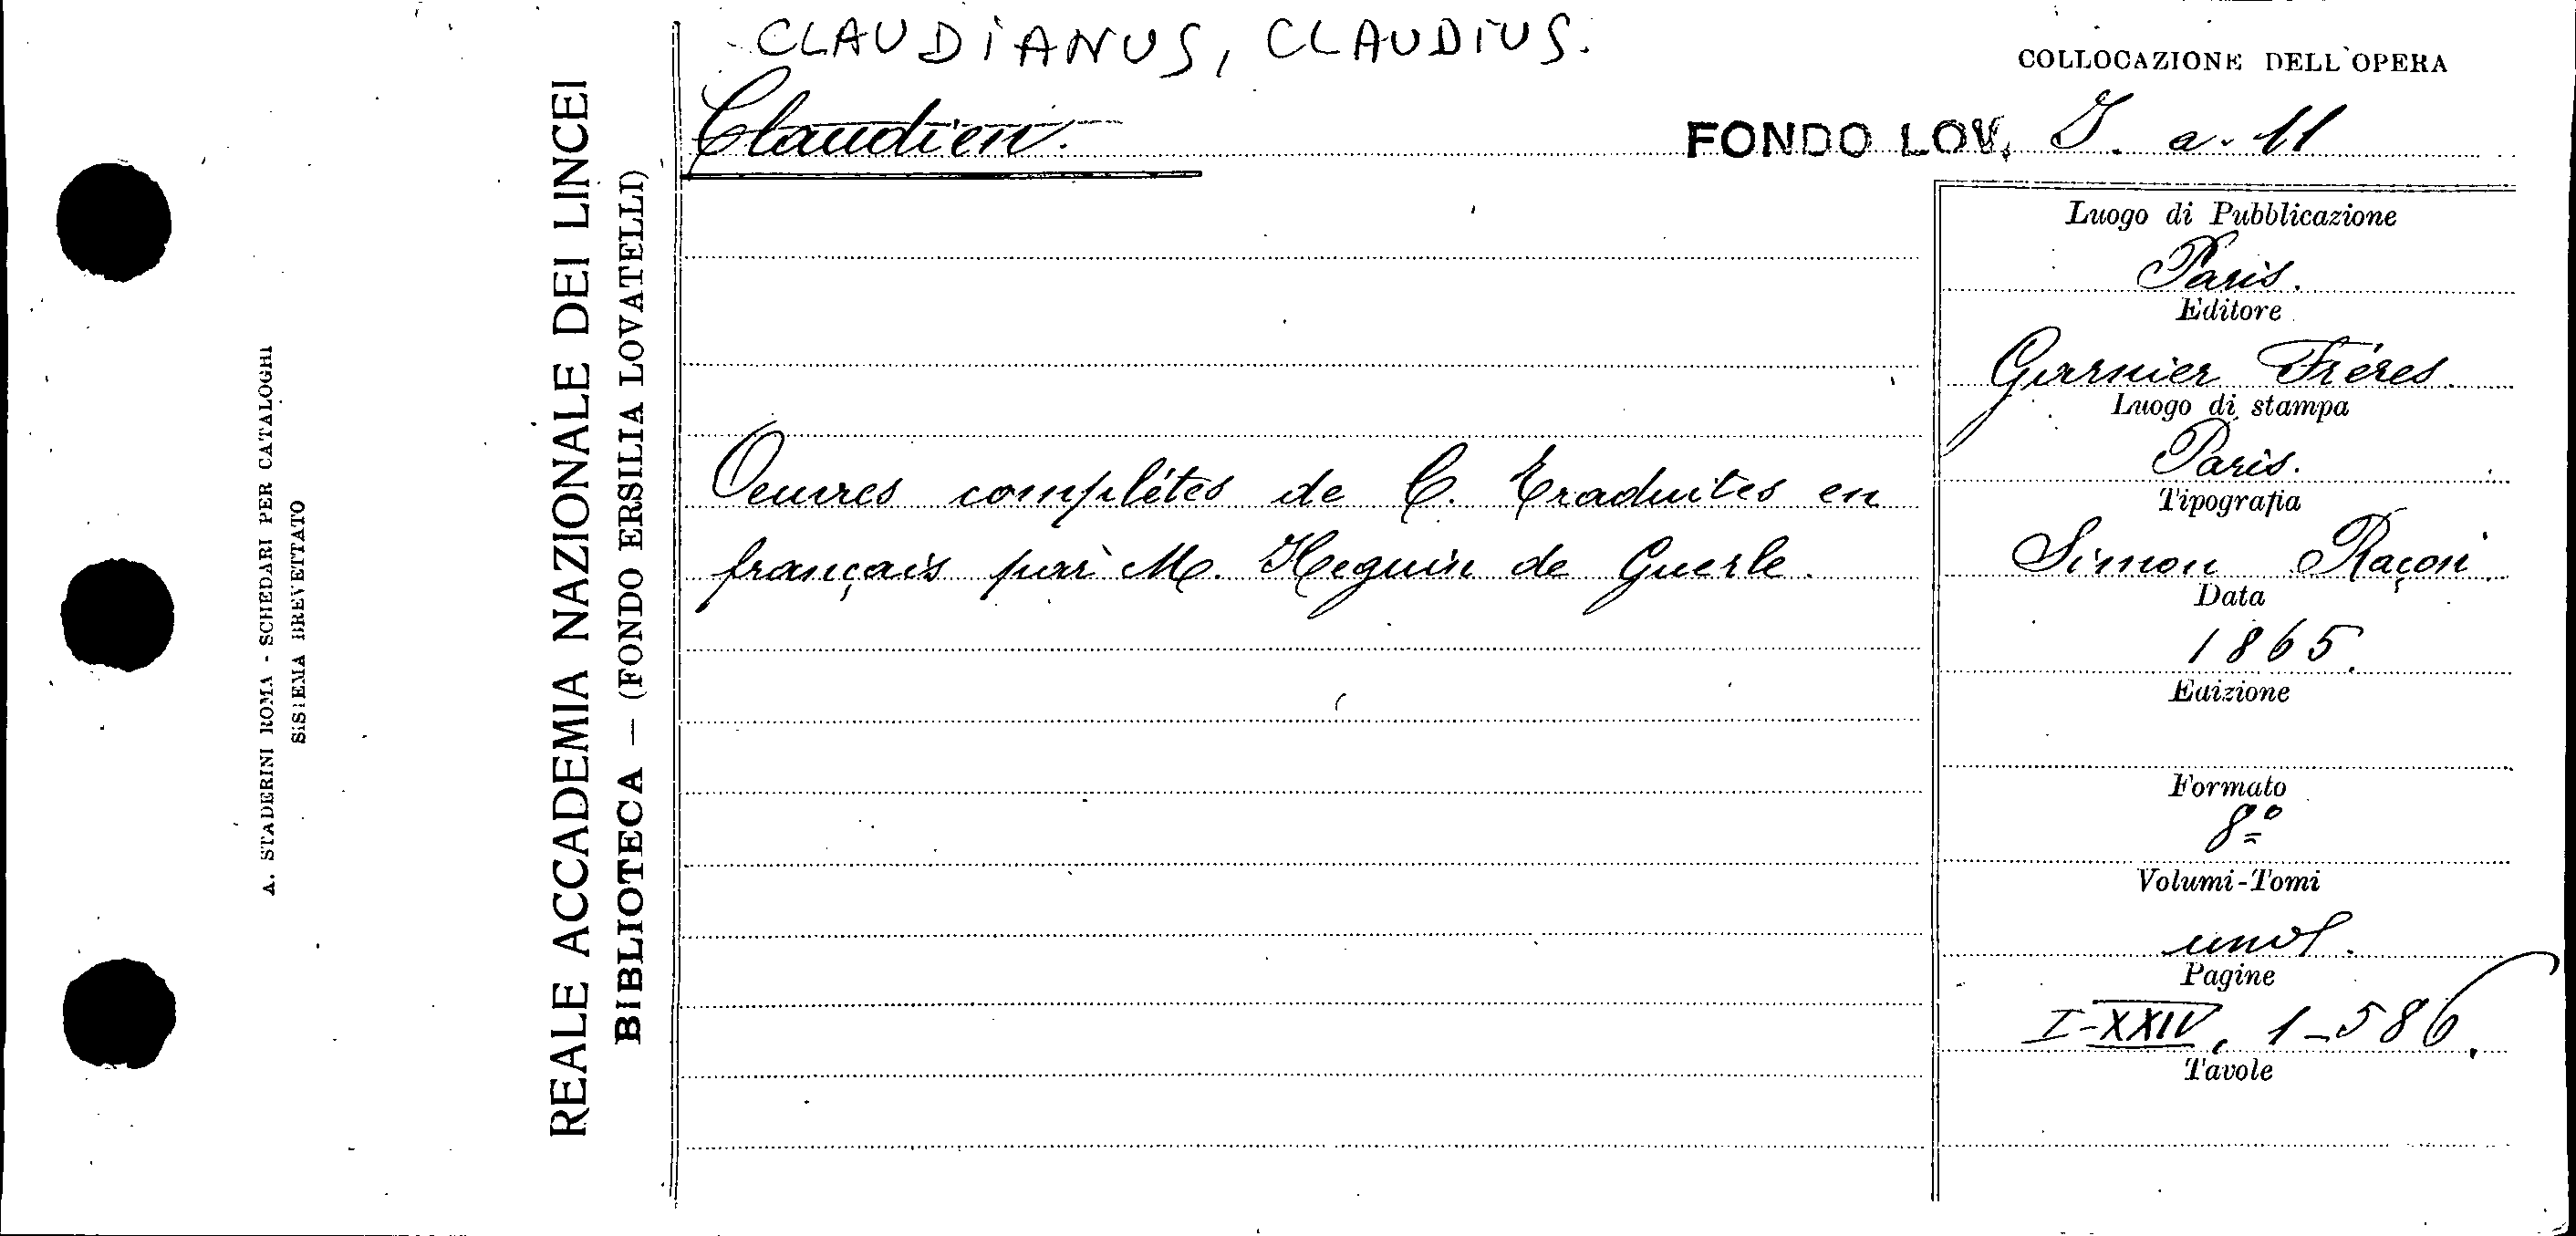 CLAUDIANUS, CLAUDIUS.
Claudien.
COLLOCAZIONE DELL'OPERA
FONDO LOV. I. a. 11
Oeuvres complétes de C. Traduites en
français par M. Heguin de Guerle.
Luogo di Pubblicazione
Paris.
Editore
Garnier Fréres.
Luogo di stampa
Paris.
Tipografia
Simon Raçon
Data
1865.
Edizione
Formato
8º
Volumi-Tomi
Pagine
I-XXIV, 1-586.
Tavole
REALE ACCADEMIA NAZIONALE DEI LINCEI
BIBLIOTECA — (FONDO ERSILIA LOVATELLI)
A. STADERINI ROMA - SCHEDARI PER CATALOGHI
SISTEMA BREVETTATO